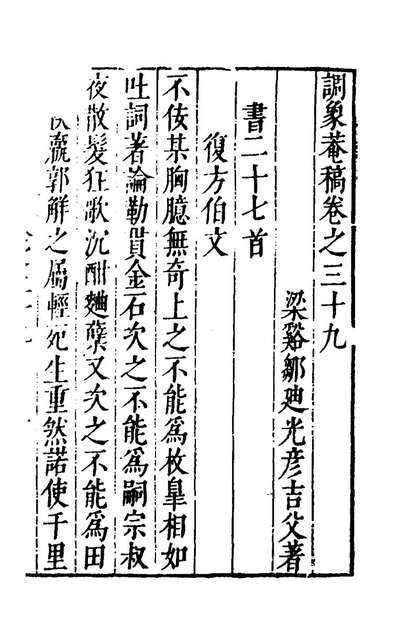 調象菴稿卷之三十九
梁谿鄒廸光彥吉父著
書二十七首
復方伯文
不佞某胸臆無奇上之不能爲枚臯相如
吐詞著論勒貫金石次之不能爲嗣宗叔
夜散髮狂歌沉酣麯糵又次之不能爲田
嬴郭解之屬輕死生重然諾使千里